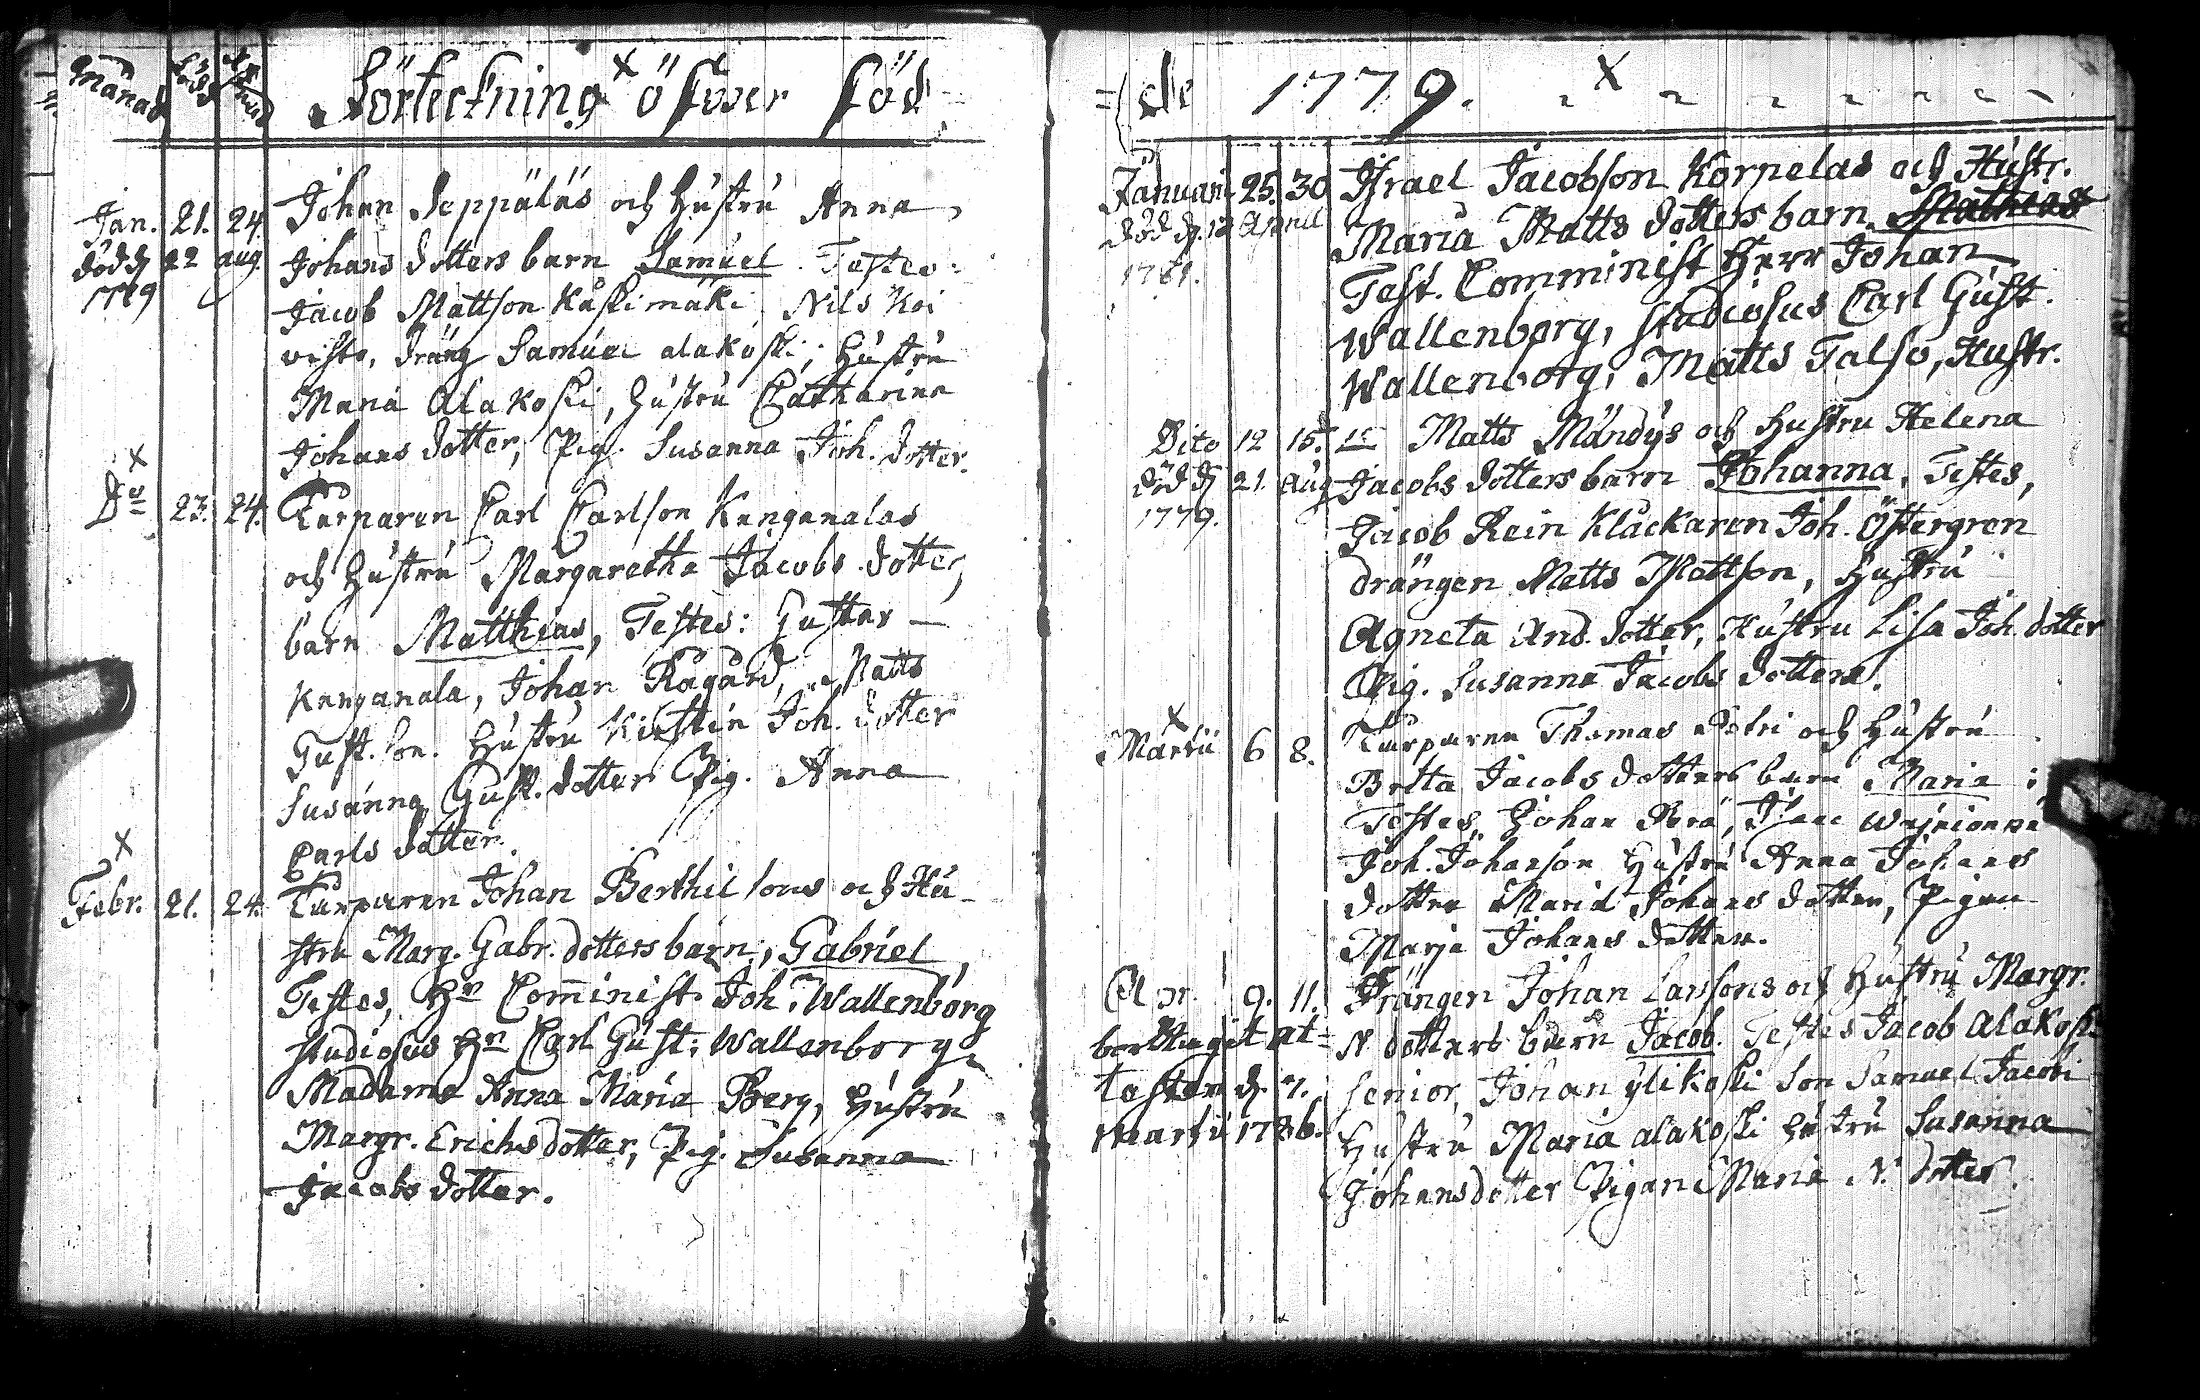 Månad Förteckning öfwer föd
Jan. 21. 24. Johan Seppäläs och Hustru Anna
död d. 22 aug. Johans dotters barn Samuel. Testes:
1779 Jacob Mattson Kåskimäki Nils Koi
visto, dräng Samuel alakoski; Hustru
Maria Alakoski, Hustru Catharina
Johans dotter, Pig. Susanna Joh. dotter.
X
Do 23. 24. Torparen Carl Carlson Kanganalas
och Hustru Margaretha Jacobs dotter,
barn Matthias, Testes: Gustav
Kanganala, Johan Rågård, Matts
Gust. son. Hustru Kirstin Joh. dotter
Susanna Gust. dotter Pig. Anna
Carls dotter.
X
Febr. 21. 24. Torparen Johan Berthilsons och Hu-
stru Marg. Gabr. dotters barn, Gabriel,
Testes, Hn Comminist. Joh. Wallenborg
studiosus Hn Carl Gust: Wallenborg,
Madame Anna Maria Berg, Hustru
Margr. Erichs dotter, Pig. Susanna
Jacobs dotter.
de 1779. X
Januari 25. 30 Israel Jacobson Korpelas och Hustr.
död d. 12 April Maria Matts dotters barn. Mathias
1781. Test. Comminist Herr Johan
Wallenborg, studiosus Carl Gust.
Wallenborg, Matts Talso, Hustr.
Dito 12 15. Matts Mändys och Hustru Helena
död d. 21. Aug Jacobs dotters barn Johanna, Testes,
1779. Jacob Rein Klåckaren Joh. Östergren
drängen Matts Mattson, Hustru
Agneta And. dotter, Hustru Lisa Joh. dotter
Pig. Susanna Jacobs dotter.
X
Martii 6 8. Torparen Thomas Petri och Hustru
Brita Jacobs dotters barn Maria:
Testes, Johan Perä,
Joh. Johanson Hustru Anna Johans
dotter Maria Johans dotter, Pigan
Marja Johans dotter.
Apr. 9. 11. Drängen Johan Larssons och Hustru Margr.
borttagit at- N. dotters barn Jacob. Testes Jacob Alakoski
testen d. 7. senior, Johan ylikoski son Samuel Jacobi
Martii 1786. Hustru Maria alakoski Hustru Susanna
Johansdotter Pigan Maria N. dotter.